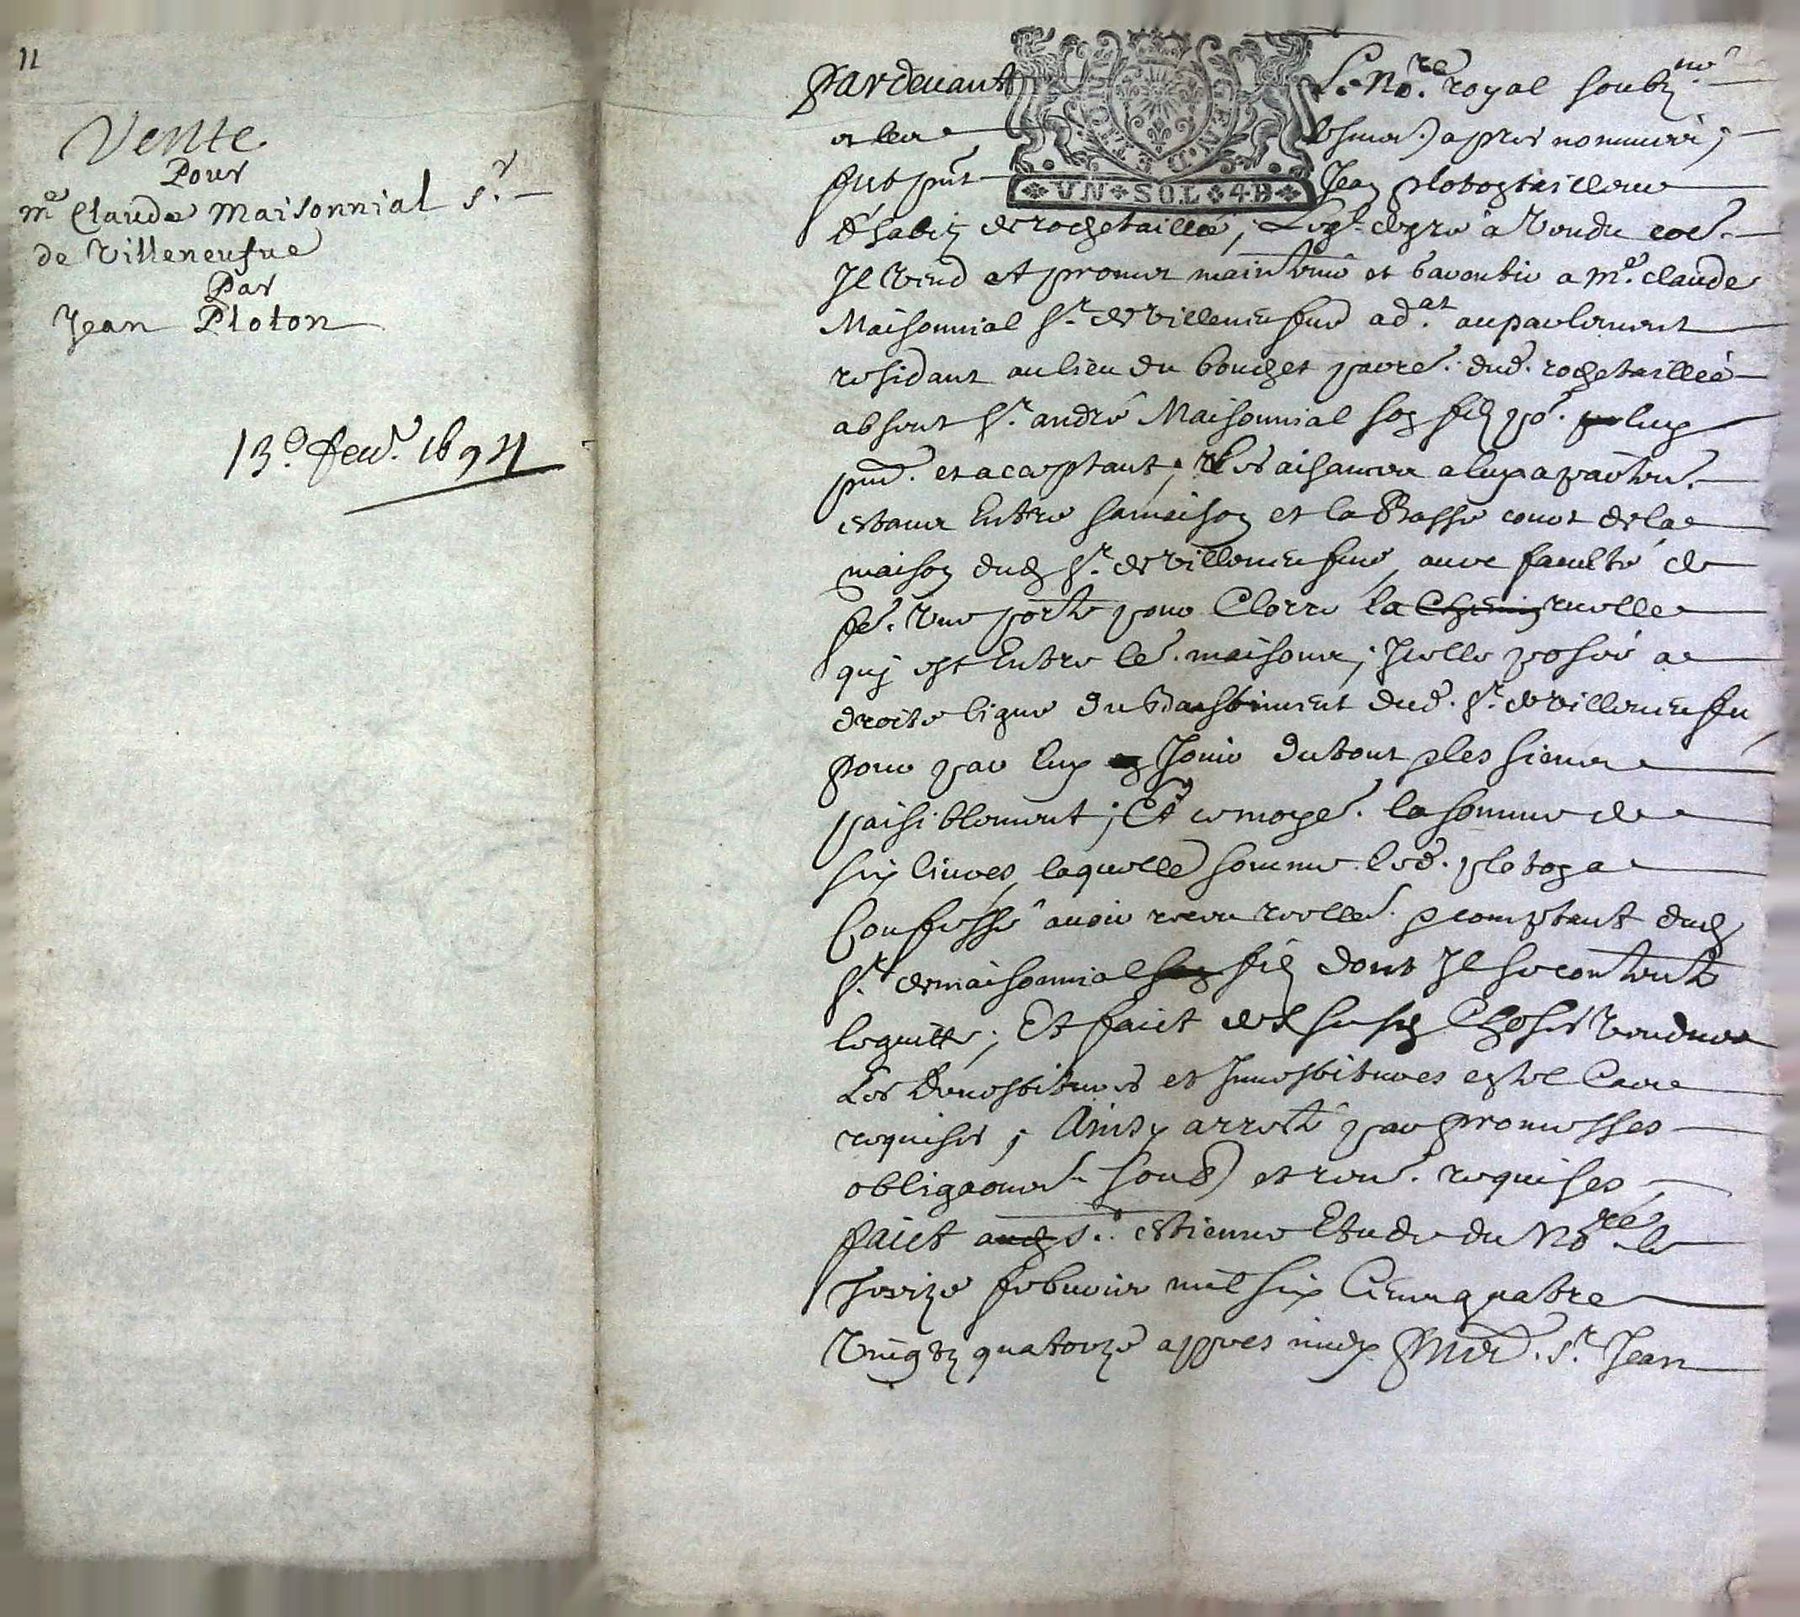 11
Vente
Pour
me Claude Maisonnial sr
de Villeneufue
Par
Jean Ploton
13e feu. 1694
GENERALITE
VN SOL 4 D
Pardeuant Le Nore royal soubzne
et les apres nommés,
fut pnt Jean ploton tailleur
de rochetaillé, Leql de gré a Vendu coe.
Jl Vend et promet maintenir et garentir a me. claude
Maisonnial sr. de Villeneufue adat au parlement
residant au lieu du bouchet parre. dud. rochetaillée
absent sr. andré Maisonnial son filz po. luy
pnt. et acceptant, les aisances a luy aparten.
estans Entre sa maison et la Basse court de la
maison dud sr. de Villeneufue, auec faculté de
fe. Vne porte pour Clorre la Chemin ruelle
quj est Entre les. maisons; Jcelle posée a
droite ligne du Bastiment dud. sr. de Villeneufu
pour par luy en Jouir du tout ples siens
paisiblement; Et ce moye. la somme de
six liures, laquelle somme led. ploton a
Confessé auoir receu reelle. pcomptant dud
sr. de maisonnial son filz dont Jl se contente
le quitte; Et faict des susd Choses Vendues
Les Deuestitures et Jnuestitures en tel Cas
requises, Ainsy arresté par promesses
obligaons. soub) et ren. requises,
faict aud St. estienne Etude du Nore le
treize feburier mil six Cens quatre
Vingtz quatorze appres midy pnt. sr. Jean